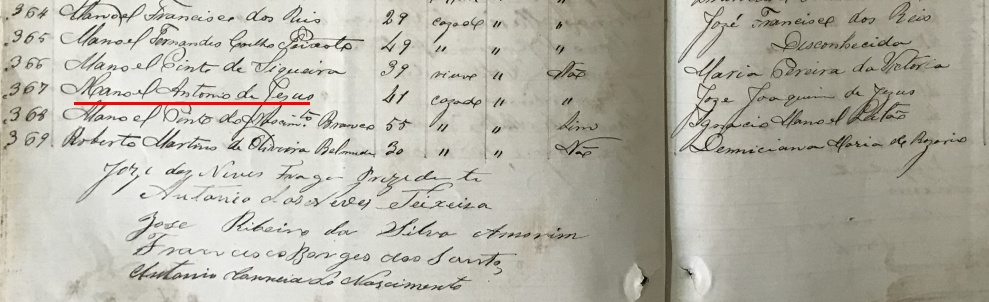 364 Manoel Francisco dos Reis 29 cazado " " José Francisco dos Reis
365 Manoel Fernandes Coelho Peixoto 49 " " " Desconhecida
366 Manoel Pinto de Siqueira 39 viuvo " Não Maria Pereira da Victoria
367 Manoel Antonio de Jezus 41 cazado " " Joze Joaquim de Jezus
368 Manoel Pinto do Nascim.to Branco 55 " " Sim Ignacio Manoel
369. Roberto Martins de Oliveira 30 " " Não Demiciana Maria do Rozario
Joze das Neves Fraga Prezidente
Antonio das Neves Teixeira
Jose Ribeiro da Silva Amorim
Francisco Borges dos Santos
Antonio Correia do Nascimento